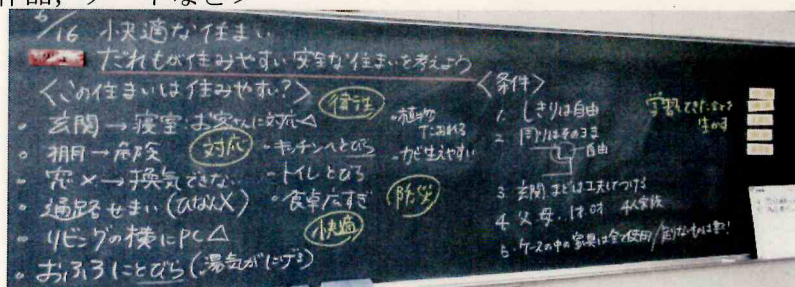 6/16 快適な住まい
だれもが住みやすい安全な住まいを考えよう
〈この住まいは住みやすい?〉
衛生
・玄関→寝室 お客さんに対応△
・棚→危険
対応
・窓×→換気できない
・通路せまい(ひなん×)
・リビングの横にPC△
・おふろにとびら(湯気がにげる)
・キッチンへとびら
・トイレとびら
・食卓広すぎ
快適
・植物
・カビ生えやすい
防災
〈条件〉
1. しきりは自由
2. 周りはそのまま
自由
3 玄関まどは工夫してつける
4 父 母 4人家族
5. ケースの中の家具は全て使用
学習してきたことを
生かす